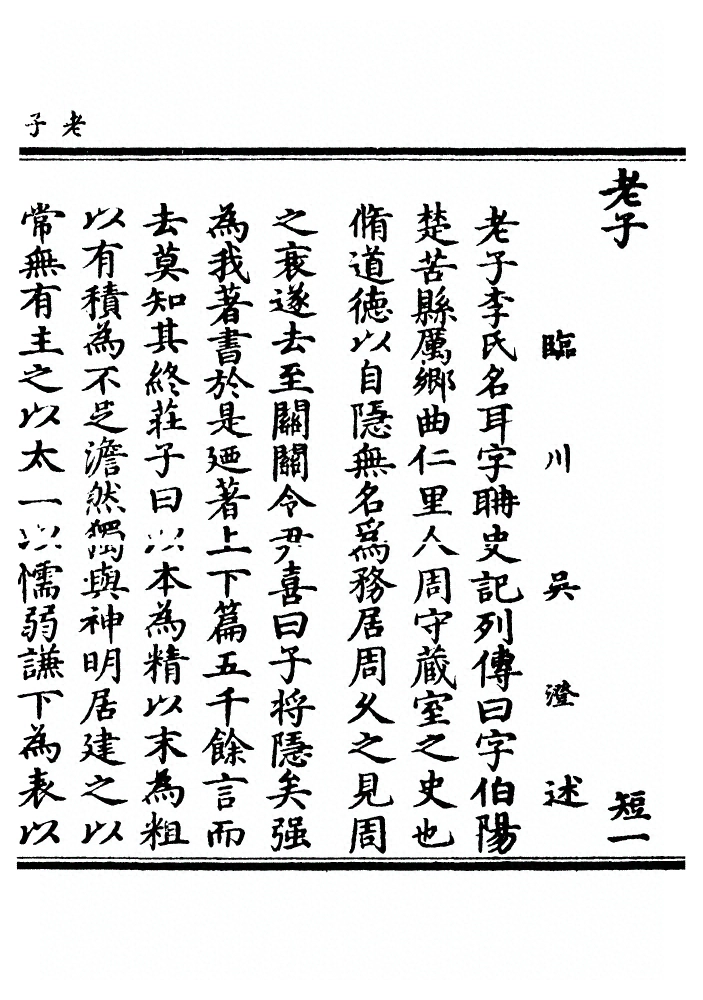 老子
老子 短一
臨川吳澄述
老子李氏名耳字耼史記列傳曰字伯陽
楚苦縣厲鄉曲仁里人周守蔵室之史也
脩道德以自隱無名爲務居周久之見周
之衰遂去至關關令尹喜曰子将隱矣强
為我著書於是廼著上下篇五千餘言而
去莫知其終莊子曰以本為精以末為粗
以有積為不足澹然獨與神明居建之以
常無有主之以太一以懦弱謙下為表以